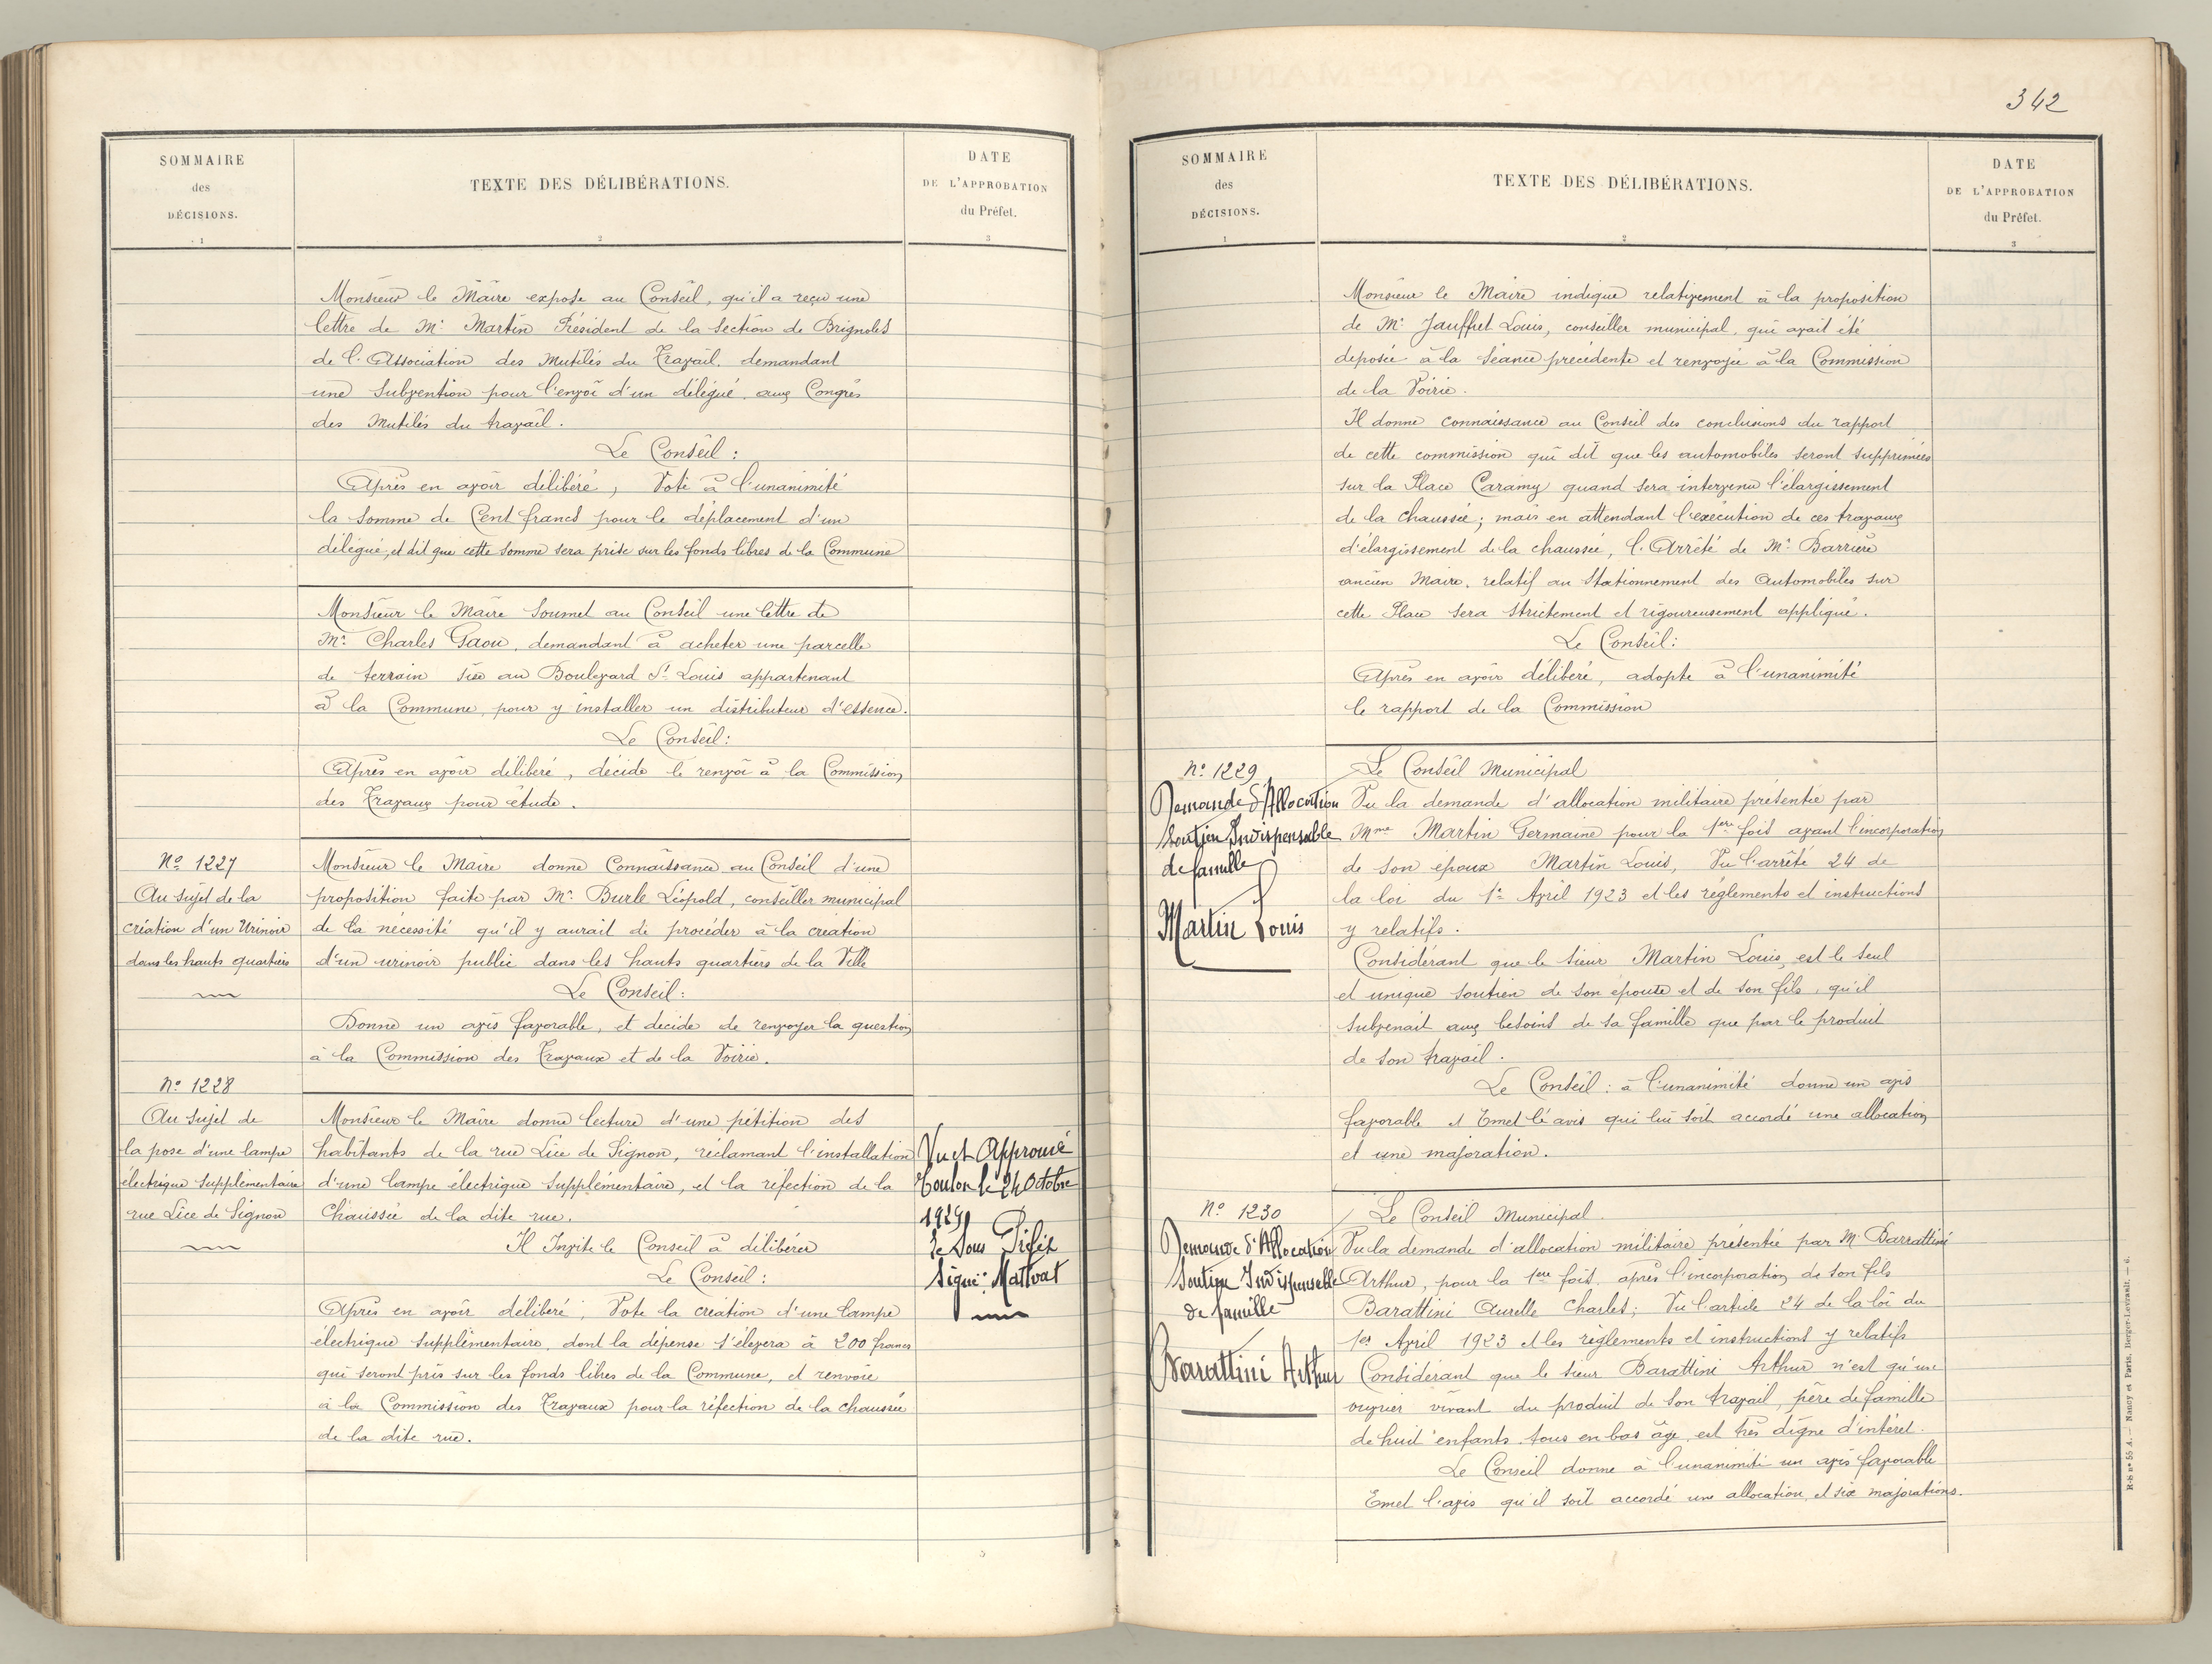 SOMMAIRE
des
DÉCISIONS.
1
TEXTE DES DÉLIBÉRATIONS.
2
DATE
DE L'APPROBATION
du Préfet.
3
Monsieur le Maire expose au Conseil, qu'il a reçu une
lettre de Mr. Martin Président de la Section de Brignoles
de l'Association des Mutilés du Travail, demandant
une Subvention pour l'envoi d'un délégué, aux Congrès
des Mutilés du travail.
Le Conseil :
Après en avoir délibéré, Vote à l'unanimité
la Somme de Cent francs pour le déplacement d'un
délégué, et dit que cette Somme sera prise sur les fonds libres de la Commune
Monsieur le Maire Soumet au Conseil une lettre de
Mr. Charles Gaou, demandant à acheter une parcelle
de terrain sise au Boulevard St. Louis appartenant
à la Commune, pour y installer un distributeur d'essence.
Le Conseil :
Après en avoir délibéré, décide le renvoi à la Commission
des Travaux pour étude.
No 1227
Au sujet de la
création d'un Urinoir
dans les hauts quartiers
Monsieur le Maire donne Connaissance au Conseil d'une
proposition faite par Mr. Burle Léopold, conseiller municipal
de la nécessité qu'il y aurait de procéder à la création
d'un urinoir public dans les hauts quartiers de la Ville
Le Conseil :
Donne un avis favorable, et decide de renvoyer la question
à la Commission des Travaux et de la Voirie.
No 1228
Au sujet de
la pose d'une lampe
électrique Supplémentaire
rue Lice de Signon
Monsieur le Maire donne lecture d'une pétition des
habitants de la rue Lice de Signon, réclamant l'installation
d'une lampe électrique Supplémentaire, et la réfection de la
Chaussée de la dite rue.
Il Invite le Conseil à délibérer
Le Conseil :
Après en avoir délibéré, Vote la création d'une lampe
électrique supplémentaire, dont la dépense s'élevera à 200 francs
qui seront pris sur les fonds libres de la Commune, et renvoie
à la Commission des Travaux pour la réfection de la chaussée
de la dite rue.
Vu et Approuvé
Toulon le 24 Octobre
1929
Le Sous Préfet
Signé :
342
SOMMAIRE
des
DÉCISIONS.
1
TEXTE DES DÉLIBÉRATIONS.
2
DATE
DE L'APPROBATION
du Préfet.
3
Monsieur le Maire indique relativement à la proposition
de Mr. Jauffret Louis, conseiller municipal, qui avait été
déposée à la Séance précédente et renvoyée à la Commission
de la Voirie.
Il donne connaissance au Conseil des conclusions du rapport
de cette commission qui dit que les automobiles seront supprimées
sur la Place Caramy quand sera intervenu l'élargissement
de la chaussée; mais en attendant l'exécution de ces travaux
d'élargissement de la chaussée, l'Arrêté de Mr. Barrière
ancien Maire, relatif au Stationnement des Automobiles sur
cette Place sera strictement et rigoureusement appliqué.
Le Conseil :
Après en avoir délibéré, adopte à l'unanimité
le rapport de la Commission
No 1229
Demande d'Allocation
Soutien Indispensable
de famille
Martin Louis
Le Conseil Municipal
Vu la demande d'allocation militaire présentée par
Mme Martin Germaine pour la 1ere fois avant l'incorporation
de son époux Martin Louis, Vu l'arrêté 24 de
la loi du 1r Avril 1923 et les règlements et instructions
y relatifs.
Considérant que le sieur Martin Louis, est le seul
et unique soutien de son épouse et de son fils, qu'il
subvenait aux besoins de sa famille que par le produit
de son travail.
Le Conseil : à l'unanimité donne un avis
favorable et Emet l'avis qui lui soit accordé une allocation
et une majoration.
No 1230
Demande d'Allocation
Soutien Indispensable
de famille
Barattini Arthur
Le Conseil Municipal.
Vu la demande d'allocation militaire présentée par M. Barrattini
Arthur, pour la 1ere fois, après l'incorporation de son fils
Barattini Aurelle Charles; Vu l'article 24 de la loi du
1er Avril 1923 et les règlements et instructions y relatifs
Considérant que le sieur Barattini Arthur n'est qu'un
ouvrier vivant du produit de son travail, père de famille
de huit enfants tous en bas âge, est très digne d'intéret.
Le Conseil donne à l'unanimité un avis favorable
Emet l'avis qu'il soit accordé une allocation et six majorations.
R-S no 55 A. — Nancy et Paris. Berger-Levrault. — 6.